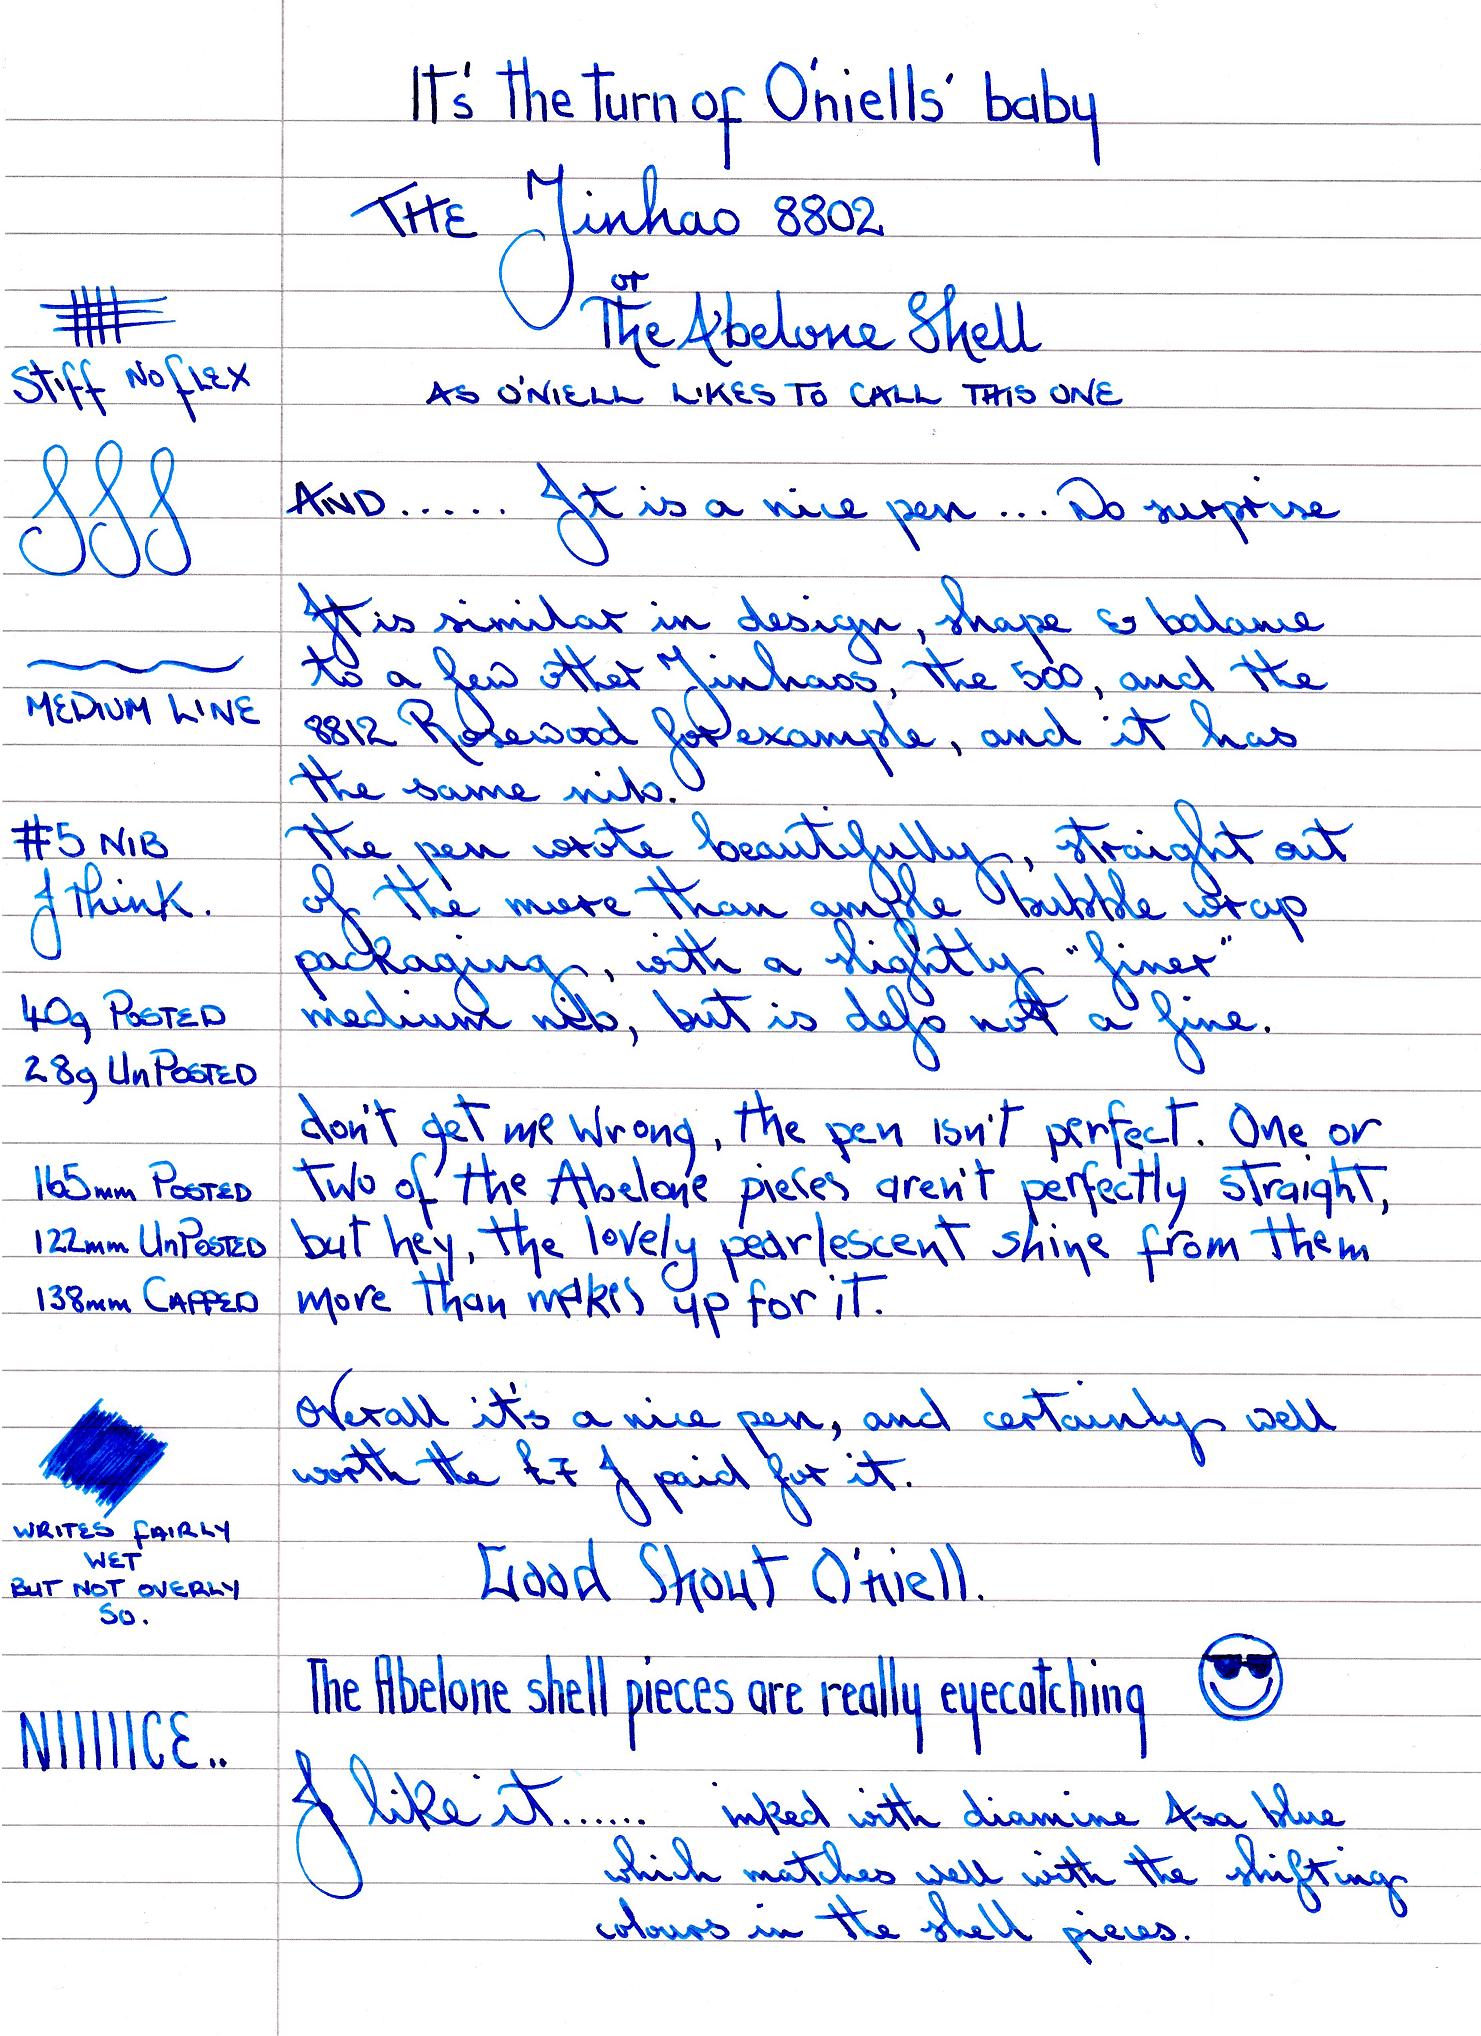 It's the turn of O'niells' baby
THE Jinhao 8802
or
The Abelone Shell
AS O'NIELL LIKES TO CALL THIS ONE
STIFF NO FLEX
AND..... It is a nice pen ... No surprise
It is similar in design, shape & balance
to a few other Jinhaos, the 500, and the
8812 Rosewood for example, and it has
the same nib.
MEDIUM LINE
the pen wrote beautifully, straight out
of the more than ample bubble wrap
packaging, with a slightly "finer"
medium nib, but is defo not a fine.
#5 NIB
I think.
40g POSTED
28g UnPOSTED
don't get me wrong, the pen isn't perfect. One or
two of the Abelone pieces aren't perfectly straight,
but hey, the lovely pearlescent shine from them
more than makes up for it.
165mm POSTED
122mm UnPOSTED
138mm CAPPED
Overall it's a nice pen, and certainly well
worth the £7 I paid for it.
WRITES FAIRLY
WET
BUT NOT OVERLY
SO.
Good Shout O'niell.
The Abelone shell pieces are really eyecatching
NIIIIIICE..
I like it...... inked with diamine Asa blue
which matches well with the shifting
colours in the shell pieces.